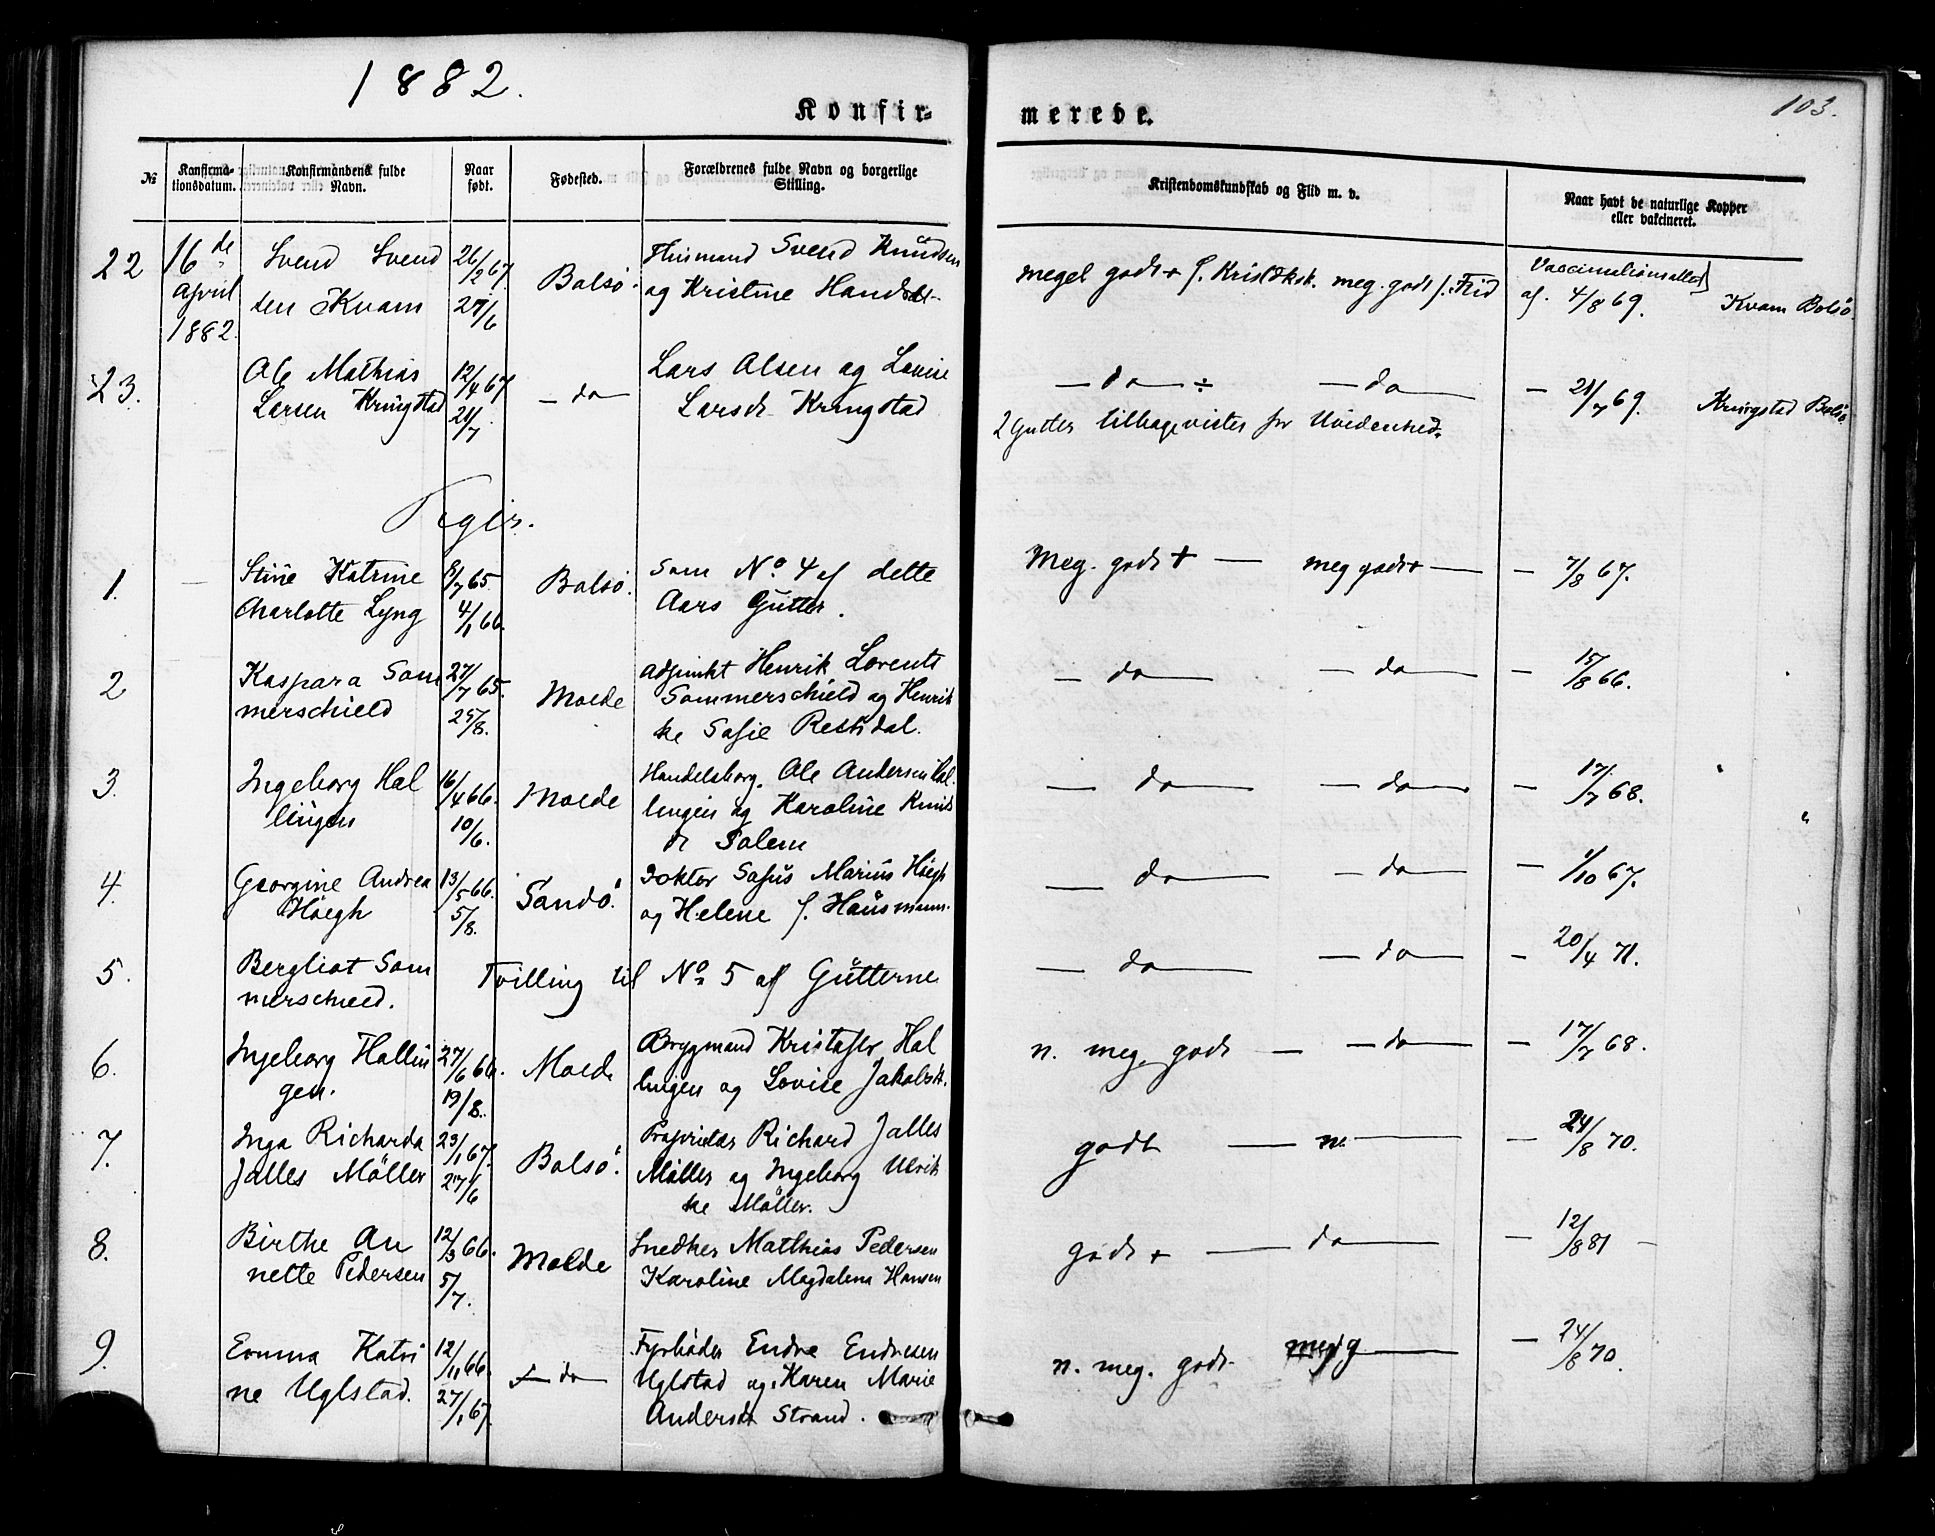 1882.
103.
Konfir- merede.
№
Konfirma-
tionsdatum.
Konfirmandens fulde
Navn.
Naar
født.
Fødested.
Forældrenes fulde Navn og borgerlige
Stilling.
Kristendomskundskab og Flid m. v.
Naar havt de naturlige Kopper
eller vakcineret.
22 16de Svend Svend 26/2 67. Bolsö. Husmand Svend Knudsen meget godt + f. Kristdksk. meg. godt f. Flid Vaccinationsattest
April sen Kvam 27/6 og Kristine Hansdt. af. 4/8 69. Kvam Bolsö.
1882.
23. Ole Mathias 12/4 67 – do – Lars Olsen og Lovise – do – ÷ – do – – 21/7 69. Kringstad Bolsö
Larsen Kringstad 21/7 Larsdt. Kringstad
2 Gutter tilbagevistes for Uvidenhed.
Piger.
1. Stine Katrine 8/7 65. Bolsö. Som No. 4 af dette Meg. godt + – meg godt + – – 7/8 67.
Charlotte Lyng 4/1 66. Aars Gutter.
2 Kaspara Som 27/7 65. Molde Adjunkt Henrik Lorents – do – – do – – 15/8 66.
merschield 25/8. Sommerschield og Henrik
ke Sofie Restdal.
3. Ingeborg Hal 16/4 66. Molde Handelsborg. Ole Andersen Hal. – do – – do – – 17/7 68.
lingen 10/6. lingen og Karoline Knuds
dt Solem
4. Georgine Andrea 13/5 66. Sandö. Doktor Sofus Marius Höegh – do – – do – – 1/10 67.
Höegh 5/8. og Helene f. Hausmann.
5. Bergliot Som Tvilling til No 5 af Gutterne – do – – do – – 20/4 71.
merschield.
6. Ingeborg Hallin 27/6 66. Molde Brygmand Kristofer Hal n. meg. godt – – do – – 17/7 68.
gen. 19/8. lingen og Lovise Jakobsdt.
7. Inga Richarda 23/1 67. Bolsö. Proprietær Richard Jalles godt – n. – – 24/8 70.
Jalles Möller 27/6 Möller og Ingeborg Ulrik
ke Möller.
8. Birthe An 12/3 66. Molde Snedker Matthias Pedersen godt + – do – – 12/8 81 –
nette Pedersen 5/7. Karoline Magdalena Hansen
9. Emma Katri 12/11 66. – do – Fyrböder Endre Endresen n. meg. godt meg – – 24/8 70.
ne Uglstad. 27/1 67. Uglstad og Karen Marie
Andersdt Strand.